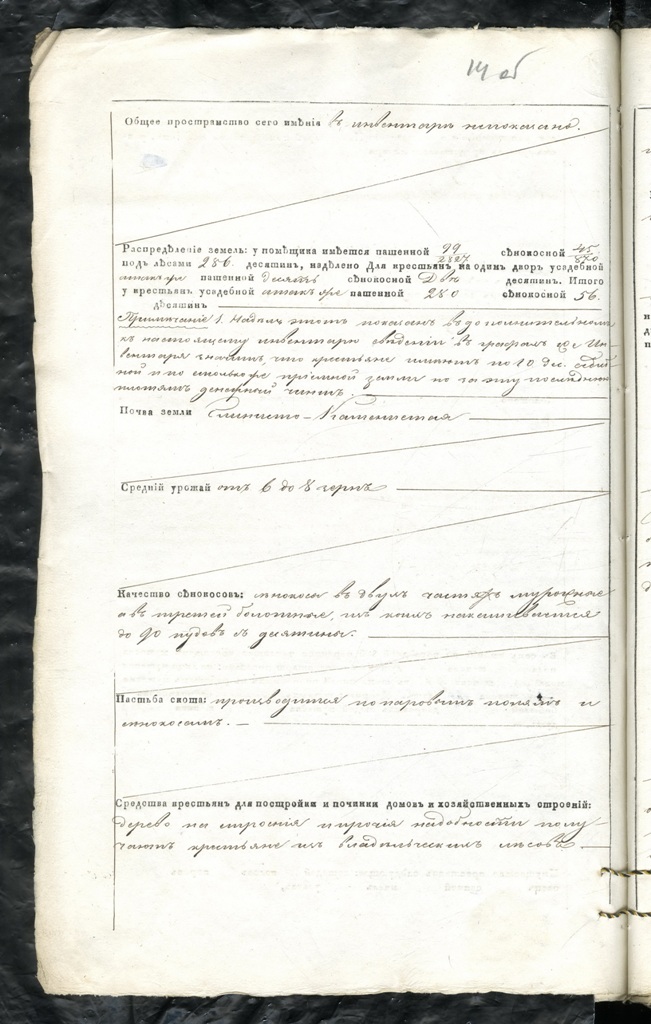 14 об
Общее пространство сего имѣнія въ инвентарѣ непоказано.
Распредѣленіе земель: у помѣщика имѣется пашенной 99/2827 сѣнокосной 45/570
подъ лѣсами 286. десятинъ, надѣлено Для крестьянъ, на одинъ дворъ усадебной
пашенной десять сѣнокосной Двѣ десятин. Итого
у крестьянъ усадебной пашенной 280 сѣнокосной 56.
десятинъ
Примѣчаніе 1. Надѣлъ этотъ показанъ въ дополнительномъ
къ настоящему инвентарю свѣденіи въ графахъ же Ин-
вентаря значитъ что крестьяне имѣютъ по 10 дес.
и по стольку же пріемной земли но за эту послѣднюю
платятъ денежный чиншъ.
Почва земли Глинисто-Каменистая
Средній урожай отъ 6 до 8 зернъ
Качество сѣнокосовъ: сѣнокосы въ двухъ частяхъ мурожные
а въ третей болотные, изъ коихъ накашивается
до 90 пудовъ съ десятины.
Пастьба скота: производится по паровымъ полямъ и
сѣнокосамъ.
Средства крестьян для постройки и починки домовъ и хозяйственныхъ строеній:
дерево на строенія и прочія надобности полу-
чаютъ крестьяне изъ владѣльческихъ лѣсовъ